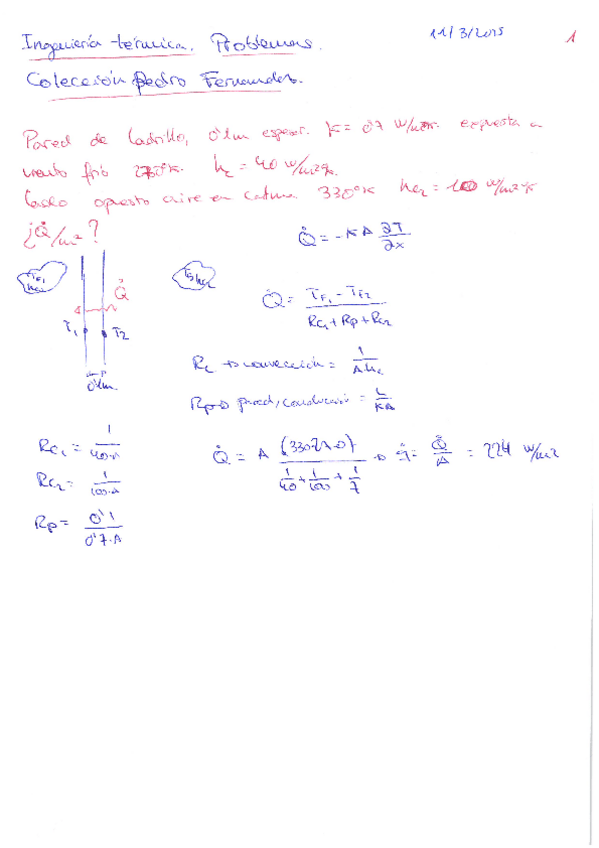 11/3/2015
1
Ingeniería térmica. Problemas.
Colección Pedro Fernandez.
Pared de ladrillo, 0'1m espesor. K = 0'7 W/m°K. expuesta a
viento frío 270°K. hc = 40 W/m²°K.
lado opuesto aire en calma 330°K hc2 = 10 W/m²°K
¿Q̇/m²?
Q̇ = -KA ∂T/∂x
TF1
hc1
Q̇
hc2
T1
T2
0'1m.
Q̇ = (TF1 - TF2)/(Rc1+Rp+Rc2)
Rc → convección = 1/(A hc)
Rp → pared, conducción = L/(KA)
Rc1 = 1/(40·A)
Rc2 = 1/(100·A)
Rp = 0'1/(0'7·A)
Q̇ = A (330-270)/(1/40 + 1/100 + 1/7) → q̇ = Q̇/A = 224 W/m²